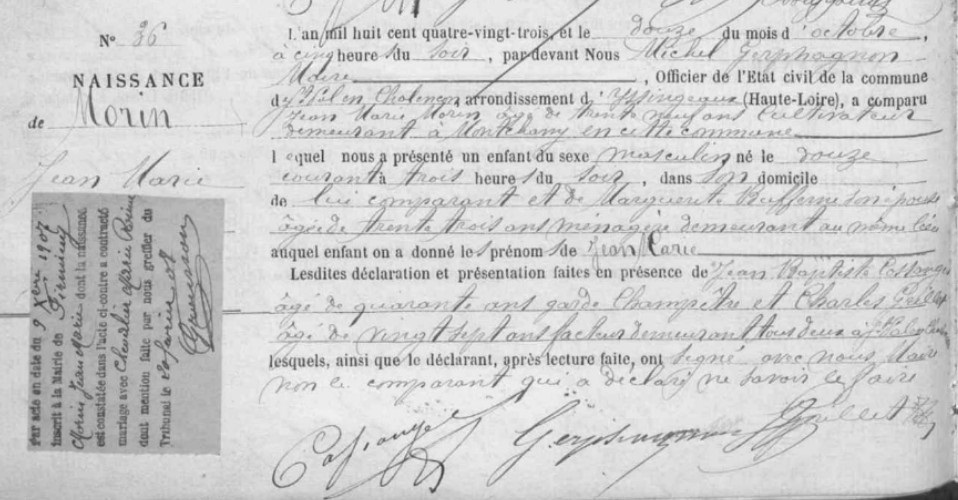 N° 36
NAISSANCE
de Morin
Jean Marie
L'an mil huit cent quatre-vingt-trois, et le douze du mois d'octobre,
à cinq heures du soir, par-devant Nous Michel Gerphagnon
Maire, Officier de l'Etat civil de la commune
de St Pal en Chalencon, arrondissement d'Yssingeaux (Haute-Loire), a comparu
Jean Marie Morin âgé de trente neuf ans Cultivateur
demeurant à Montchany en cette commune
lequel nous a présenté un enfant du sexe masculin né le douze
courant à trois heures du soir, dans son domicile
de lui comparant et de Marguerite son épouse
âgée de trente trois ans ménagère demeurant au même lieu
auquel enfant on a donné les prénoms de Jean Marie
Lesdites déclaration et présentation faites en présence de Jean Baptiste
âgé de quarante ans garde Champêtre et Charles Grillet
âgé de vingt sept ans facteur demeurant tous deux à St Pal
lesquels, ainsi que le déclarant, après lecture faite, ont signé avec nous Maire
non le comparant qui a déclaré ne savoir le faire
Grillet
Gerphagnon
Par acte en date du 9 Xbre 1907
inscrit à la Mairie de Firminy
Morin Jean Marie dont la naissance
est constatée dans l'acte ci-contre a contracté
mariage avec Marie
dont mention faite par nous greffier du
Tribunal le